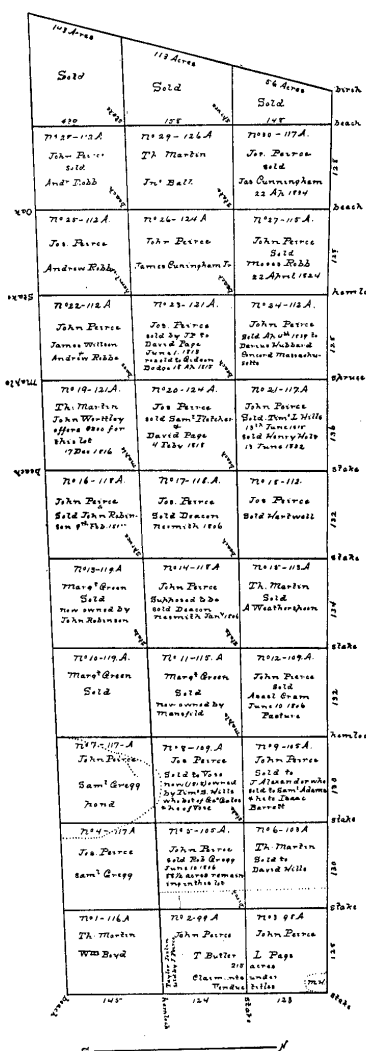 143 Acres
113 Acres
56 Acres
Sold
Sold
Sold
birch
beach
158
148
No 28-112 A.
John Peirce
Sold
Andr Robb
No 29-126 A
Th Martin
Jno Ball.
No 30-117 A.
Jos. Peirce
sold
Jas Cunningham
22 Ap 1824
125
Oak
beach
No 25-112 A.
Jos. Peirce
Andrew Robb
No 26-124 A
John Peirce
James Cuningham Jr
No 27-115 A.
John Peirce
Sold
Moses Robb
22 April 1824
125
Stake
hemlo
No 22-112 A
John Peirce
James Willson
&
Andrew Robbe
No 23-121 A.
Jos. Peirce
sold by JP to
David Page
June 1. 1815
resold to Gideon
Dodge 18 Ap 1818
No 24-112 A.
John Peirce
Darius Hubbard
Concord Massachu-
setts
125
Maple
spruce
No 19-121 A.
Th. Martin
John Wortley
offers $200 for
this lot
17 Dec 1816
No 20-124 A.
Jos Peirce
sold Saml Fletcher
&
David Page
4 Feby 1815
No 21-117 A.
John Peirce
Sold Timo J. Hills
13th June 1815
sold Henry Holt
13 June 1822
136
beach
stake
No 16-118 A.
John Peirce
Sold John Robin-
son 9th Feb.
No 17-118 A.
Jos. Peirce
Sold Deacon
Nesmith 1806
No 18-112.
Jos Peirce
Sold Hartwell
132
stake
No 13-119 A
Margt Green
Sold
now owned by
John Robinson
No 14-118 A
John Peirce
Supposed to be
sold Deacon
Nesmith Jany 1806
No 15-113 A
Th. Martin
Sold
A Weatherspoon
134
stake
No 10-119. A.
Margt Green
Sold
No 11-115. A.
Margt Green
Sold
now owned by
Mansfild
No 12-109. A.
John Pierce
Sold
Asael Gram
June 10 1806
Pasture
132
hemloc
No 7-117-A
John Peirce
Saml Gregg
Pond
No 8-109. A
Jos Peirce
Sold to Vose
now (1815) owned
by Timo S. Wills
No 9-105 A.
John Peirce
Sold to
J. Alexander who
sold to Saml Adams
& he to Isaac
Barrett
130
stake
No 4-117 A
Jos. Peirce
Saml Gregg
No 5-105 A.
John Peirce
sold Rob Gregg
June 10 1806
55½ acres remain
ing in this lot
No 6-103 A
Th. Martin
Sold to
David Wills
130
Stake
No 1-116 A
Th. Martin
Wm Boyd
No 2-99 A
John Peirce
T Butler
215 acres
Claim under
Vendue titles
No 3 95 A
John Peirce
L Page
MH
125
beach
145
hemlock
124
stake
128
stake
N